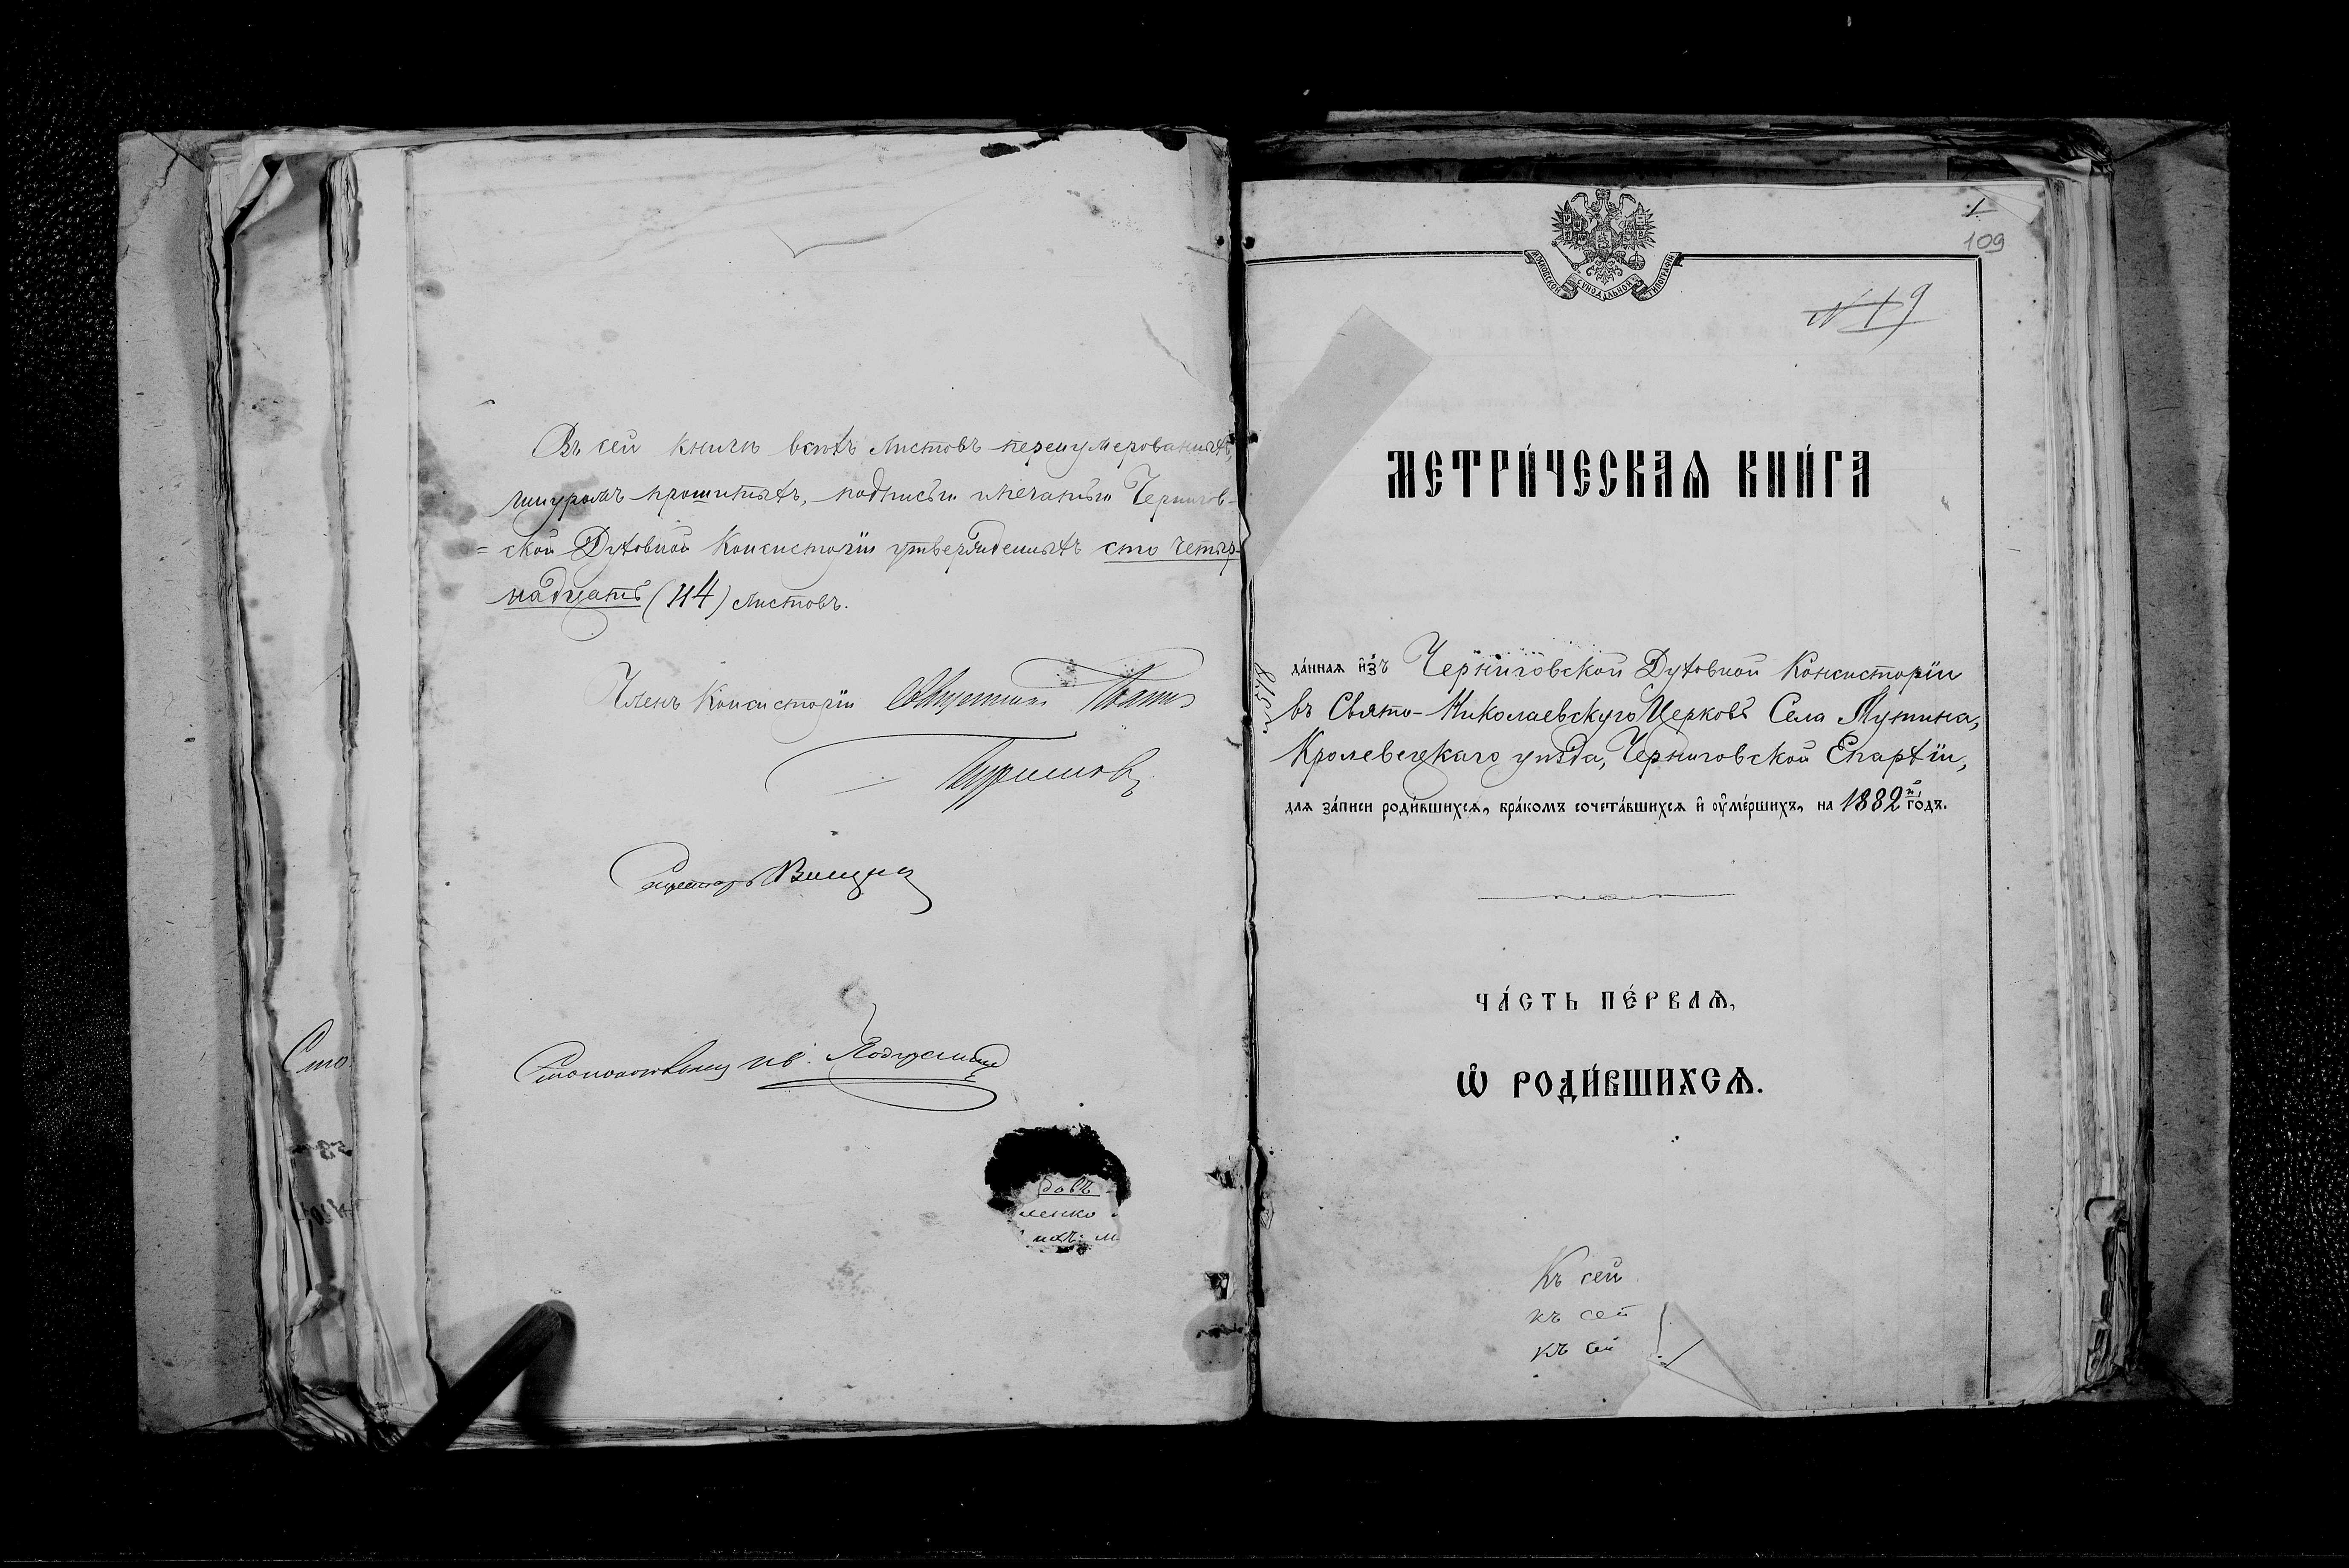 Въ сей книгѣ всѣхъ листовъ перенумерованныхъ,
шнуромъ прошитыхъ, подписью и печатью Чернигов-
= ской Духовной Консисторіи утвержденныхъ сто четыр-
надцать (114) листовъ.
Членъ Консисторіи Священникъ
Секретарь
Столоначальникъ
Сто
довъ
ленко
1
109
N 19
МОСКОВСКОЙ СѴНОДАЛЬНОЙ ТИПОГРАФІИ
МЕТРИ́ЧЕСКАѦ КНИ́ГА
да́нная и҆зъ Черниговской Духовной Консисторіи
въ Свято-Николаевскую Церковь Села Мутина,
Кролевецкаго уѣзда, Черниговской Епархіи,
для за́писи роди́вшихсѧ, бра́комъ сочета́вшихсѧ и҆ ᲂу҆ме́ршихъ, на 1882й го́дъ.
ЧА́СТЬ ПЕ́РВАѦ,
Ѽ РОДИ́ВШИХСѦ.
Къ сей
къ сей
къ сей